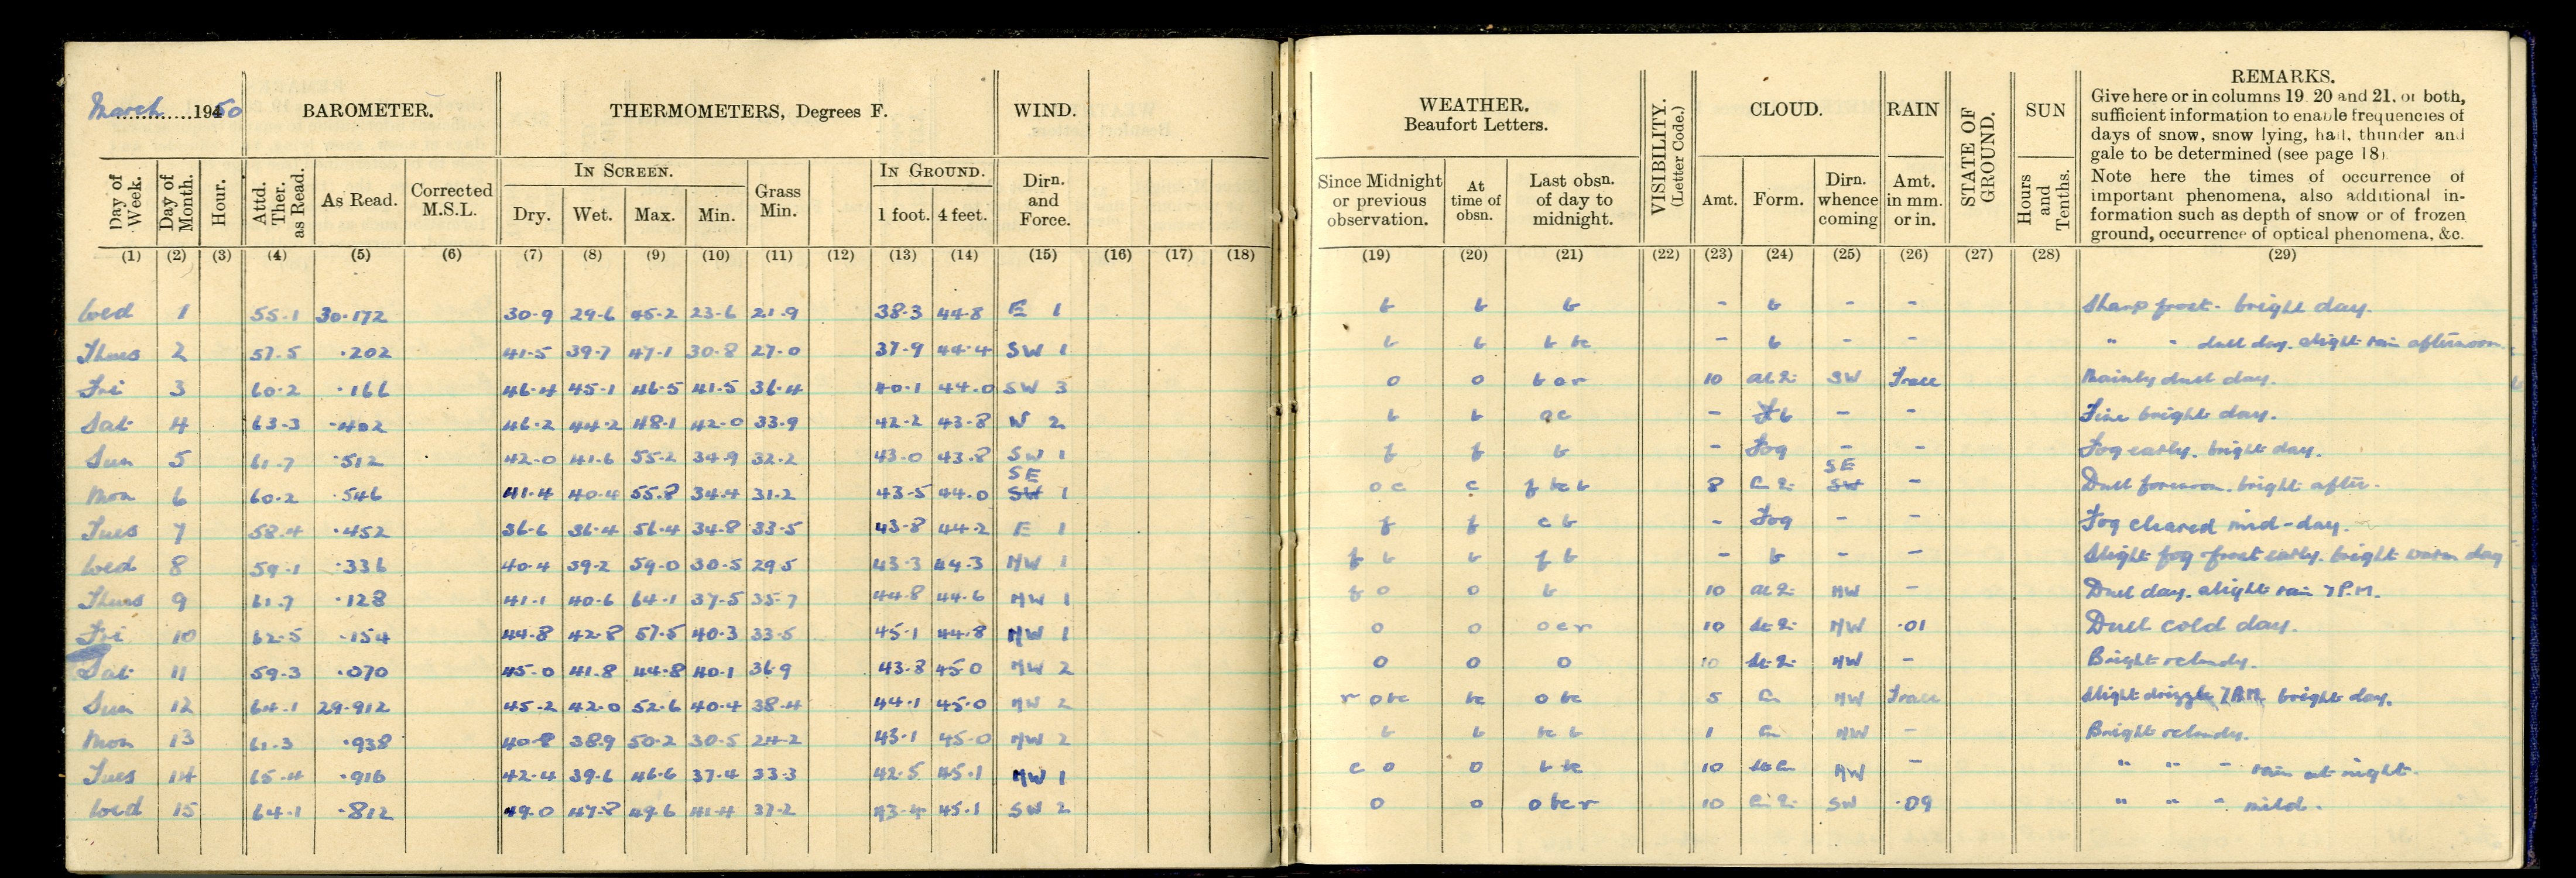 March 1950
BAROMETER.
THERMOMETERS, Degrees F.
WIND.
WEATHER.
Beaufort Letters.
VISIBILITY.
(Letter Code.)
CLOUD.
RAIN
STATE OF
GROUND.
SUN
REMARKS.
Give here or in columns 19 20 and 21, or both,
sufficient information to enable frequencies of
days of snow, snow lying, hail, thunder and
gale to be determined (see page 18)
Note here the times of occurrence of
important phenomena, also additional in-
formation such as depth of snow or of frozen
ground, occurrence of optical phenomena, &c.
Day of Week.
Day of Month.
Hour.
Attd. Ther. as Read.
As Read.
Corrected M.S.L.
IN SCREEN.
Dry. Wet. Max. Min.
Grass Min.
IN GROUND.
1 foot. 4 feet.
Dirn. and Force.
Since Midnight or previous observation.
At time of obsn.
Last obsn. of day to midnight.
Amt. Form. Dirn. whence coming
Amt. in mm. or in.
Hours and Tenths.
(1) (2) (3) (4) (5) (6) (7) (8) (9) (10) (11) (12) (13) (14) (15) (16) (17) (18) (19) (20) (21) (22) (23) (24) (25) (26) (27) (28) (29)
Wed 1 55.1 30.172 30.9 29.6 45.2 23.6 21.9 38.3 44.8 E 1 b b b - b - - Sharp frost - bright day.
Thurs 2 57.5 .202 41.5 39.7 47.1 30.8 27.0 37.9 44.4 SW 1 b b b bc - b - - " " dull day. slight rain afternoon.
Fri 3 60.2 .166 46.4 45.1 46.5 41.5 36.4 40.1 44.0 SW 3 o o b o r 10 SW Trace Mainly dull day.
Sat 4 63.3 .402 46.2 44.2 48.1 42.0 33.9 42.2 43.8 W 2 b b - b - - Fine bright day.
Sun 5 61.7 .512 42.0 41.6 55.2 34.9 32.2 43.0 43.8 SW 1 f f b - Fog - - Fog early. bright day.
Mon 6 60.2 .546 41.4 40.4 55.8 34.4 31.2 43.5 44.0 SE SW 1 o c c f bc b 8 SE SW - Dull forenoon. bright after.
Tues 7 58.4 .452 36.6 36.4 56.4 34.8 33.5 43.8 44.2 E 1 f f c b - Fog - - Fog cleared mid-day.
Wed 8 59.1 .336 40.4 39.2 59.0 30.5 29.5 43.3 44.3 NW 1 f b b f b - b - - Slight fog frost early. bright warm day
Thurs 9 61.7 .128 41.1 40.6 64.1 37.5 35.7 44.8 44.6 NW 1 f o o b 10 NW - Dull day. slight rain 7 P.M.
Fri 10 62.5 .154 44.8 42.8 57.5 40.3 33.5 45.1 44.8 NW 1 o o o c r 10 NW .01 Dull cold day.
Sat 11 59.3 .070 45.0 41.8 44.8 40.1 36.9 43.8 45.0 NW 2 o o o 10 NW - Bright & cloudy.
Sun 12 64.1 29.912 45.2 42.0 52.6 40.4 38.4 44.1 45.0 NW 2 r o bc bc o bc 5 NW Trace Slight drizzle 7 P.M. bright day.
Mon 13 61.3 .938 40.8 38.9 50.2 30.5 24.2 43.1 45.0 NW 2 b b bc b 1 NW - Bright & cloudy.
Tues 14 65.4 .916 42.4 39.6 46.6 37.4 33.3 42.5 45.1 NW 1 c o o b bc 10 NW - " " " rain at night.
Wed 15 64.1 .812 49.0 47.8 49.6 41.4 37.2 43.4 45.1 SW 2 o o o bc r 10 SW .09 " " " mild.